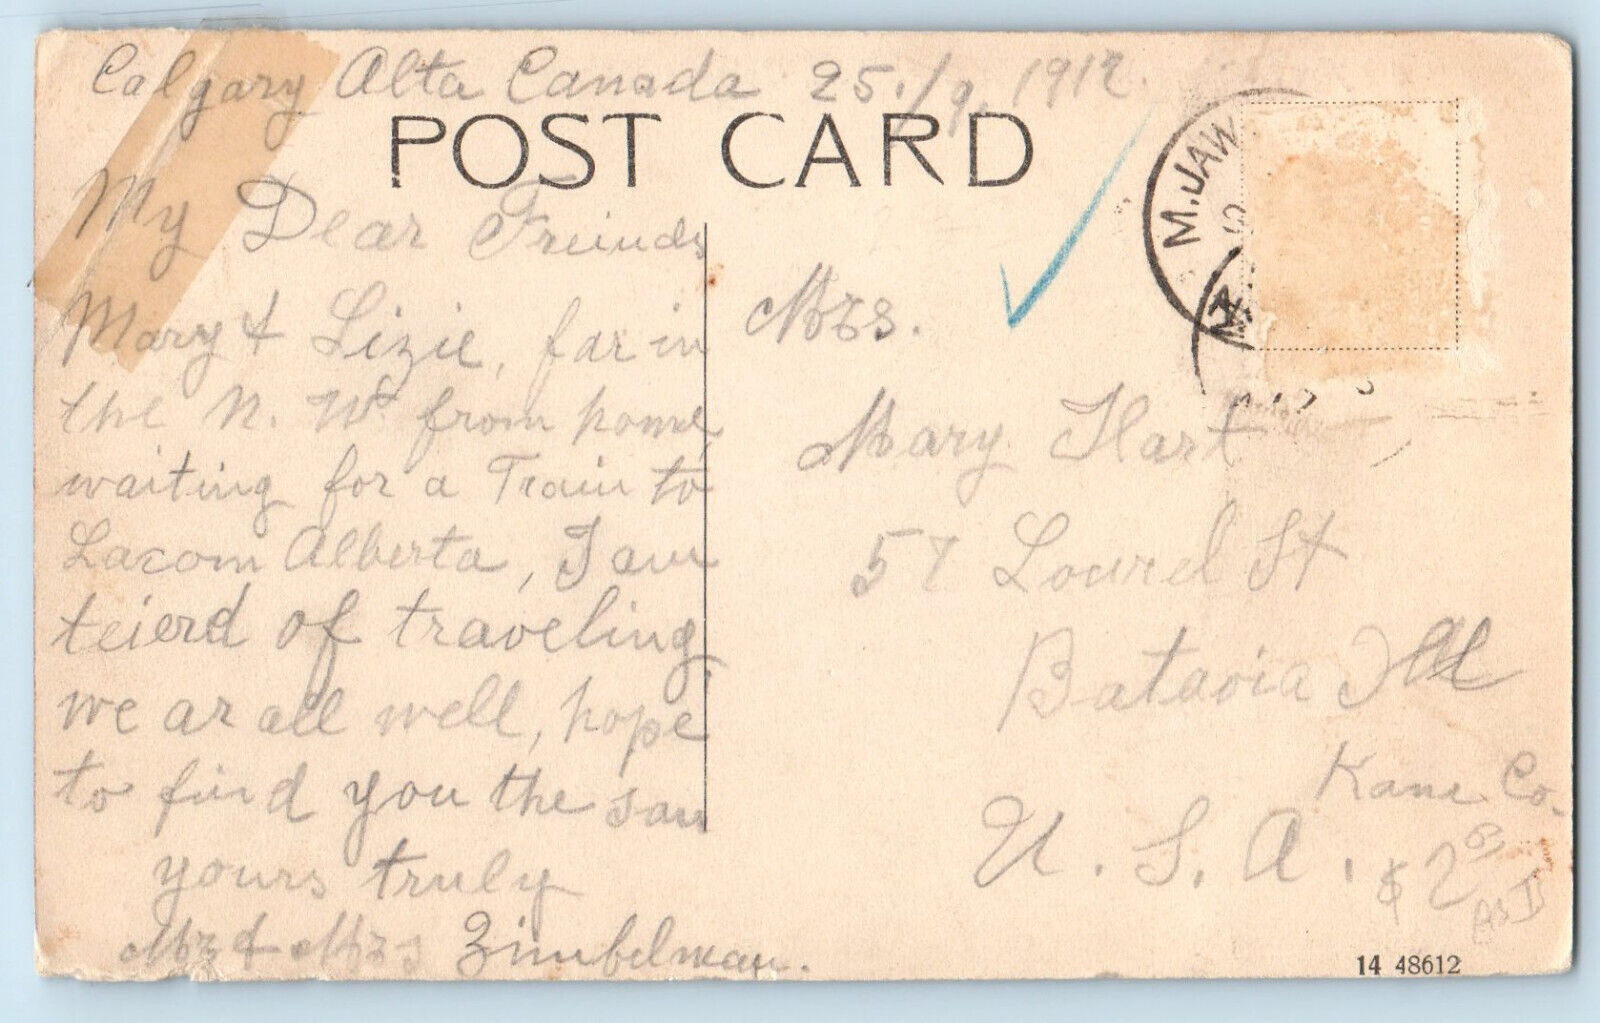 Calgary Alta Canada 25./9. 1912.
POST CARD
My Dear Freinds
Mary & Lizie, far in
the N. W. from home,
waiting for a Train to
Lacom Alberta, I am
teierd of traveling,
we ar all well, hope
to find you the sam
yours truly
Mr & Mrs Zimbelman.
M. JAW
Mrs.
Mary Hart
57 Lourel St
Batavia Ill
Kane Co.
U. S. A.
$2
14 48612